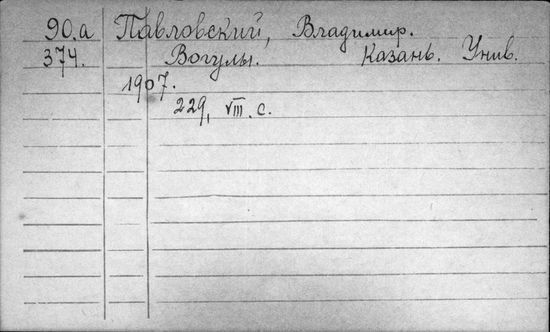 90.а Павловский, Владимир.
374. Вогулы. Казань. Унив.
1907.
229, VIII. с.